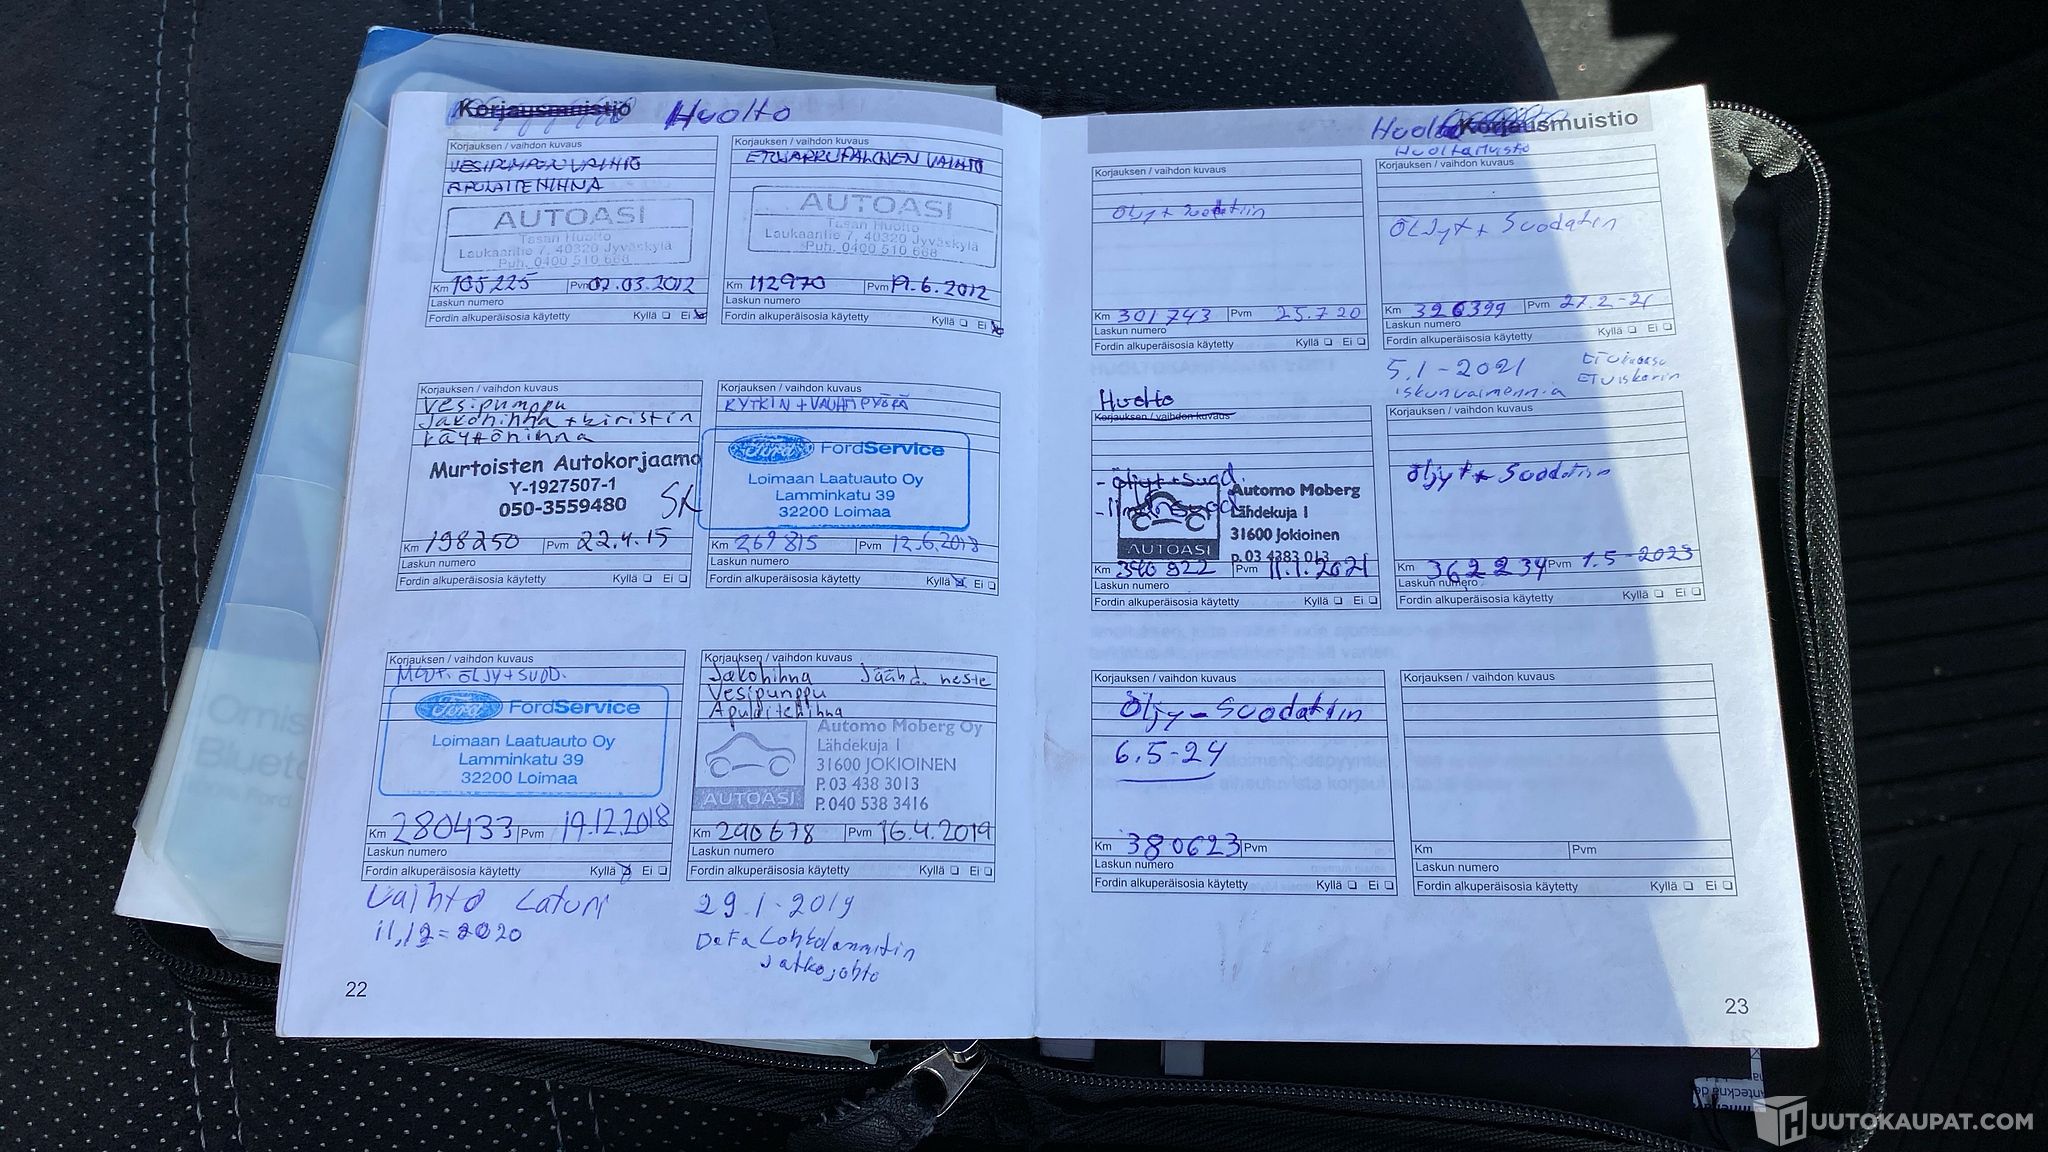 Korjausmuistio Huolto
Korjauksen / vaihdon kuvaus
VESIPUMPUN VAIHTO
APULAITEHIHNA
AUTOASI
Tasan Huolto
Laukaantie 7, 40320 Jyväskylä
Puh. 0400 510 668
Km 105225 Pvm 07.03.2012
Laskun numero
Fordin alkuperäisosia käytetty Kyllä Ei
Korjauksen / vaihdon kuvaus
ETUJARRUPALOJEN VAIHTO
AUTOASI
Tasan Huolto
Laukaantie 7, 40320 Jyväskylä
Puh. 0400 510 668
Km 112970 Pvm 19.6.2012
Laskun numero
Fordin alkuperäisosia käytetty Kyllä Ei
Korjauksen / vaihdon kuvaus
Vesipumppu
Jakohihna + kiristin
Käyttöhihna
Murtoisten Autokorjaamo
Y-1927507-1
050-3559480
SK
Km 198250 Pvm 22.4.15
Laskun numero
Fordin alkuperäisosia käytetty Kyllä Ei
Korjauksen / vaihdon kuvaus
KYTKIN + VAUHTIPYÖRÄ
Ford FordService
Loimaan Laatuauto Oy
Lamminkatu 39
32200 Loimaa
Km 269815 Pvm 12.6.2018
Laskun numero
Fordin alkuperäisosia käytetty Kyllä Ei
Korjauksen / vaihdon kuvaus
MOOT. ÖLJY + SUOD.
Ford FordService
Loimaan Laatuauto Oy
Lamminkatu 39
32200 Loimaa
Km 280433 Pvm 19.12.2018
Laskun numero
Fordin alkuperäisosia käytetty Kyllä Ei
Vaihto Laturi
11,12=2020
Korjauksen / vaihdon kuvaus
Jakohihna Jäähd. neste
Vesipumppu
Apulaitehihna
Automo Moberg Oy
Lähdekuja 1
31600 JOKIOINEN
P. 03 438 3013
AUTOASI P. 040 538 3416
Km 290678 Pvm 16.4.2019
Laskun numero
Fordin alkuperäisosia käytetty Kyllä Ei
29.1-2019
DeFa Lohkolämmitin
Jatkojohto
22
Huolto Korjausmuistio
Korjauksen / vaihdon kuvaus
Öljyt + Suodatin
Km 301743 Pvm 25.7 20
Laskun numero
Fordin alkuperäisosia käytetty Kyllä Ei
Korjauksen / vaihdon kuvaus
ÖLJyt + Suodatin
Km 326399 Pvm 27.2-21
Laskun numero
Fordin alkuperäisosia käytetty Kyllä Ei
5.1-2021
Huolto
Korjauksen / vaihdon kuvaus
- öljyt + suod.
Automo Moberg
Lähdekuja 1
31600 Jokioinen
AUTOASI P. 03 4383 013
Km 340922 Pvm 11.1.2021
Laskun numero
Fordin alkuperäisosia käytetty Kyllä Ei
Korjauksen / vaihdon kuvaus
Öljyt + Suodatin
Km 362234 Pvm 1.5-2023
Laskun numero
Fordin alkuperäisosia käytetty Kyllä Ei
Korjauksen / vaihdon kuvaus
Öljy - Suodatin
6.5-24
Km 380623 Pvm
Laskun numero
Fordin alkuperäisosia käytetty Kyllä Ei
Korjauksen / vaihdon kuvaus
Km Pvm
Laskun numero
Fordin alkuperäisosia käytetty Kyllä Ei
23
HUUTOKAUPAT.COM